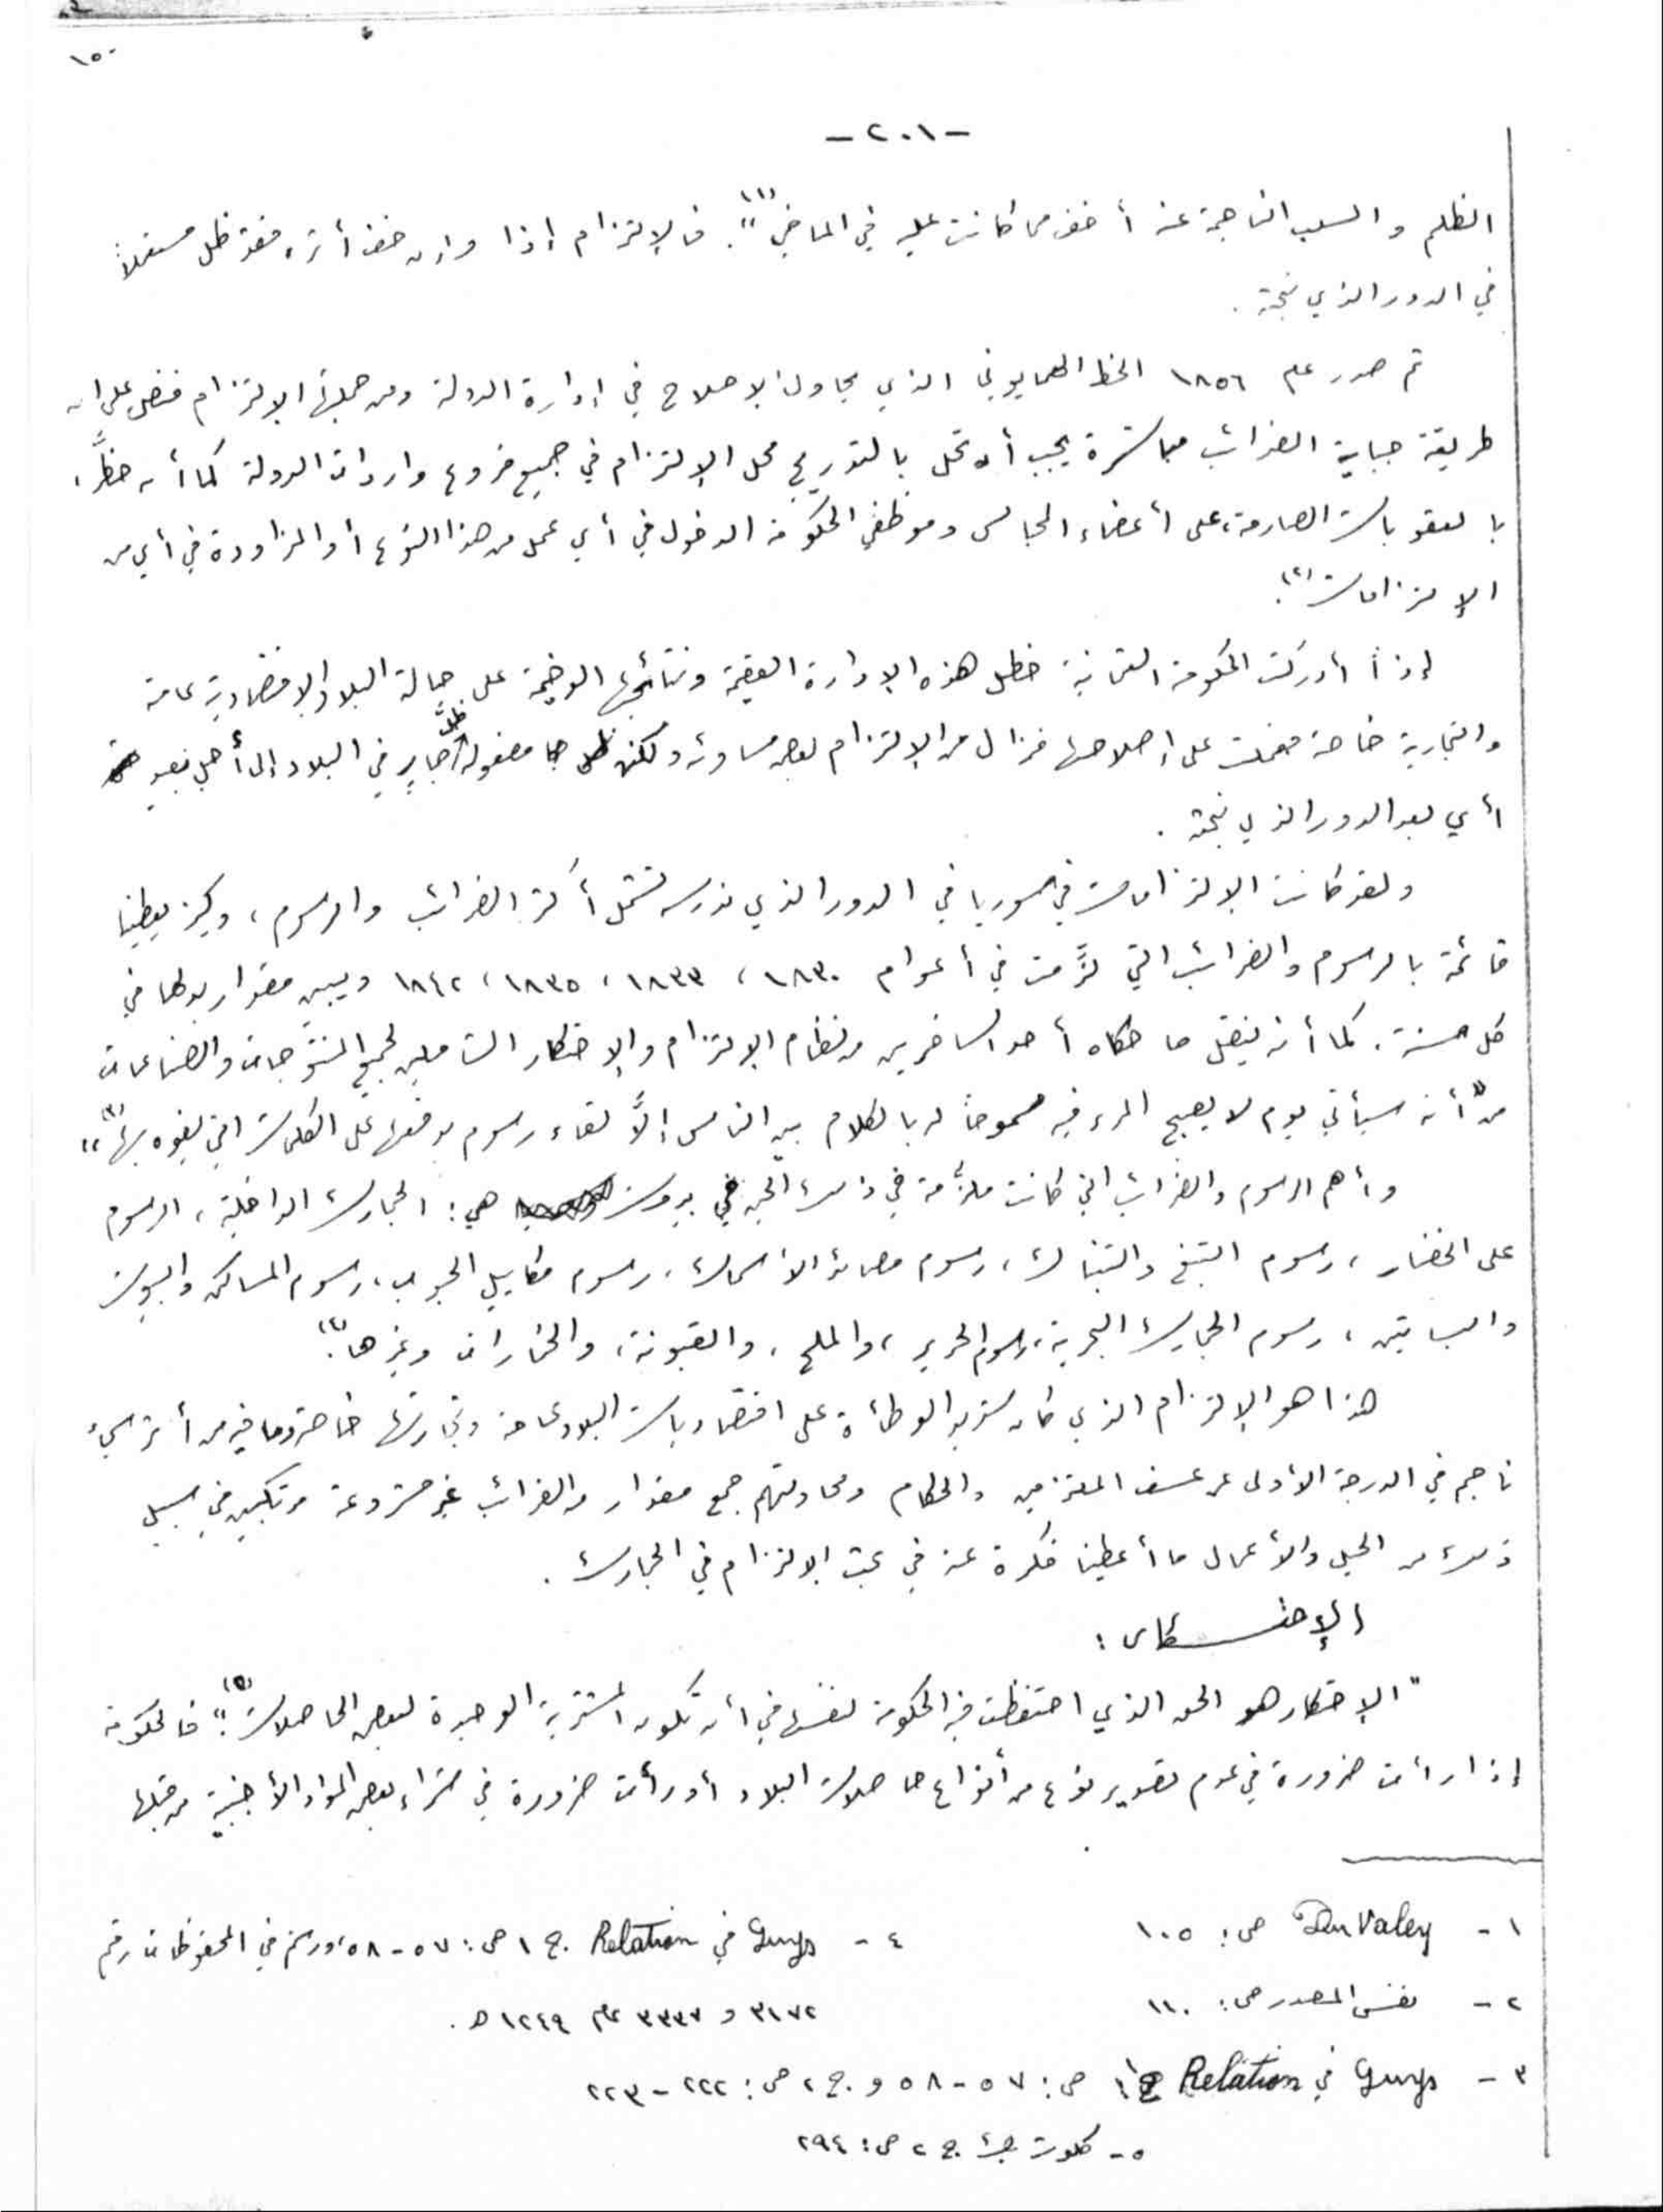 ١٥٠
-٢٠١-
الظلم والسلب الناجمة عنه أخف مما كانت عليه في الماضي"(١). فالإلتزام إذا وإن خف أثره فقد ظل مستعملاً
في الدور الذي نبحثه.
ثم صدر عام ١٨٥٦ الخط الهمايوني الذي يحاول الإصلاح في إدارة الدولة ومن جملتها الإلتزام فنص على ان
طريقة جباية الضرائب مباشرة يجب أن تحل بالتدريج محل الإلتزام في جميع فروع واردات الدولة كما أنه حظَّر،
بالعقوبات الصارمة، على أعضاء المجالس وموظفي الحكومة الدخول في أي عمل من هذا النوع أو المزاودة في أي من
الإلتزامات(٢).
إذاً أدركت الحكومة العثمانية خطل هذه الإدارة العقيمة ونتائجها الوخيمة على حالة البلاد الإقتصادية عامة
والتجارية خاصة فعملت على إصلاحها فزال من الإلتزام بعض مساوئه ولكن مفعوله ظلَّ جاريا في البلاد إلى أجل بعيد
أي بعد الدور الذي نبحثه.
ولقد كانت الإلتزامات في سوريا في الدور الذي ندرسه تشمل أكثر الضرائب والرسوم، وكيز يعطينا
قائمة بالرسوم والضرائب التي لزّمت في أعوام ١٨٣٠، ١٨٣٣، ١٨٣٥، ١٨٤٢ ويبين مقدار بدلها في
كل سنة. كما أنه ينقل ما حكاه أحد المسافرين من نظام الإلتزام والإحتكار الشاملين لجميع المنتوجات والصناعات
من "أنه سيأتي يوم لا يصبح المرء فيه مسموحاً له بالكلام بين الناس إلاَّ لقاء رسوم يدفعها على الكلمات التي يفوه بها"(٣)
وأهم الرسوم والضرائب التي كانت ملزّمة في ذلك الحين في بيروت هي: الجمارك الداخلية، الرسوم
على الخضار، رسوم التبغ والتنباك، رسوم مصائد الأسماك، رسوم مكاييل الحبوب، رسوم المساكن والبيوت
والبساتين، رسوم الجمارك البحرية، رسوم الحرير، والملح، والقبونة، والخمارات وغيرها(٤).
هذا هو الإلتزام الذي كان شديد الوطأة على اقتصاديات البلاد عامة وتجارتها خاصة وما فيه من أثر سيء
ناجم في الدرجة الأولى عن عسف الملتزمين والحكام ومحاولتهم جمع مقدار من الضرائب غير مشروعة مرتكبين في سبيل
ذلك من الحيل والأعمال ما أعطينا فكرة عنه في بحث الإلتزام في الجمارك.
الإحتكار:
"الإحتكار هو الحق الذي احتفظت فيه الحكومة لنفسها في أن تكون المشترية الوحيدة لبعض الحاصلات"(٥). فالحكومة
إذا رأت ضرورة في عدم تصدير نوع من أنواع حاصلات البلاد أو رأت ضرورة في شراء بعض المواد الأجنبية من قبلها
١- Du Valey ص: ١٠٥
٢- نفس المصدر ص: ١١٠
٣- Guys في Relation ج ١ ص: ٥٧-٥٨ و ج ٢ ص: ٢٢٢-٢٢٣
٤- Guys في Relation ج ١ ص: ٥٧-٥٨، ورستم في المحفوظات رقم
٣١٧٢ و ٣٣٣٧ عام ١٢٤٩ ه.
٥- كلوت بك ج ٢ ص: ٢٩٤